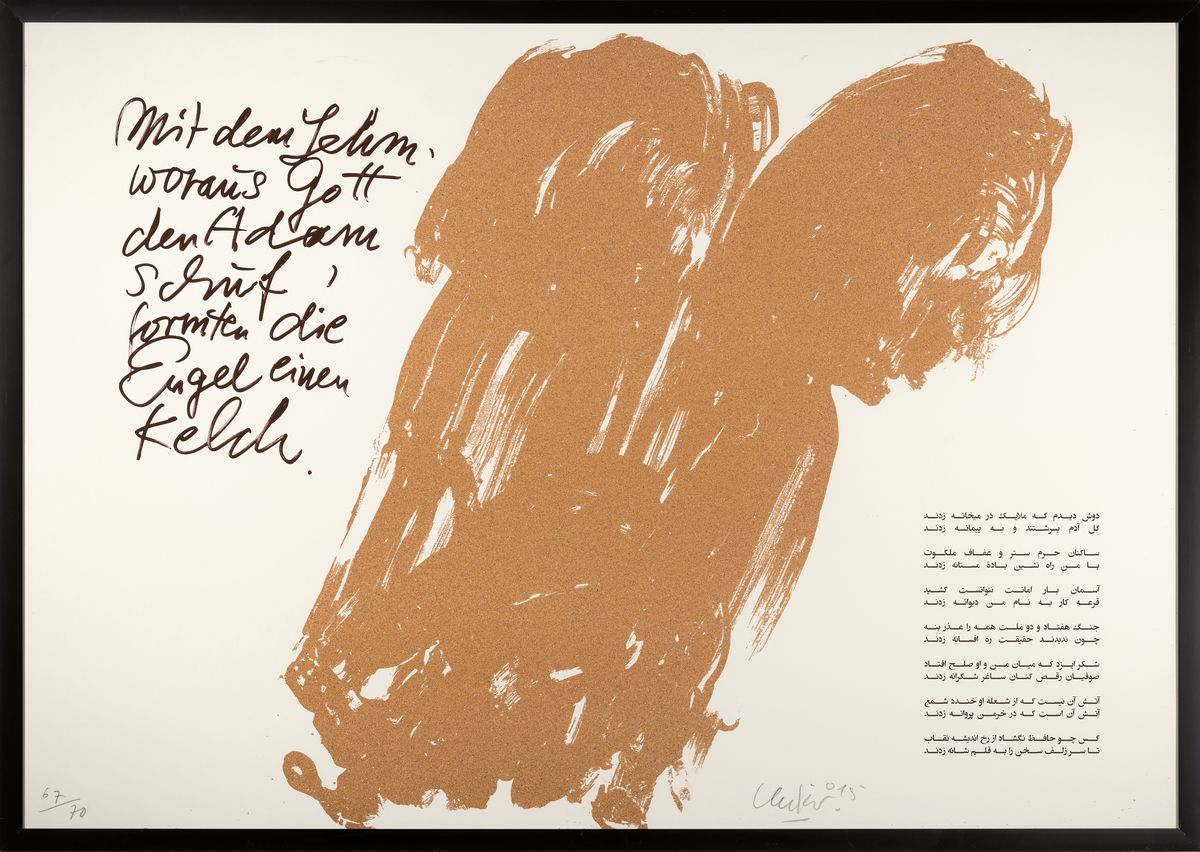 Mit dem Lehm,
woraus Gott
den Adam
schuf,
formten die
Engel einen
Kelch.
دوش دیدم که ملایک در میخانه زدند
گل آدم بسرشتند و به پیمانه زدند
ساکنان حرم ستر و عفاف ملکوت
با من راه نشین بادهٔ مستانه زدند
آسمان بار امانت نتوانست کشید
قرعه کار به نام من دیوانه زدند
جنگ هفتاد و دو ملت همه را عذر بنه
چون ندیدند حقیقت ره افسانه زدند
شکر ایزد که میان من و او صلح افتاد
صوفیان رقص کنان ساغر شکرانه زدند
آتش آن نیست که از شعله او خندد شمع
آتش آن است که در خرمن پروانه زدند
کس چو حافظ نگشاد از رخ اندیشه نقاب
تا سر زلف سخن را به قلم شانه زدند
67/70
015